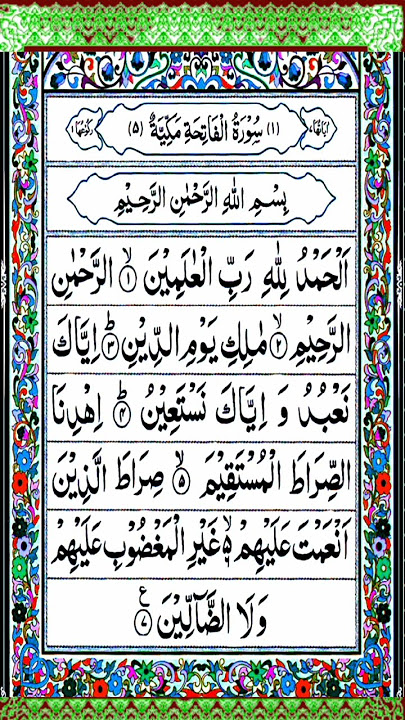 اٰيَاتُهَا ٧ (١) سُوْرَةُ الْفَاتِحَةِ مَكِّيَّةٌ (٥) رُكُوْعُهَا ١
بِسْمِ اللهِ الرَّحْمٰنِ الرَّحِيْمِ
اَلْحَمْدُ لِلّٰهِ رَبِّ الْعٰلَمِيْنَ ۙ‏﴿١﴾ الرَّحْمٰنِ
الرَّحِيْمِ ۙ‏﴿٢﴾ مٰلِكِ يَوْمِ الدِّيْنِ ؕ‏﴿٣﴾ اِيَّاكَ
نَعْبُدُ وَ اِيَّاكَ نَسْتَعِيْنُ ؕ‏﴿٤﴾ اِهْدِنَا
الصِّرَاطَ الْمُسْتَقِيْمَ ۙ‏﴿٥﴾ صِرَاطَ الَّذِيْنَ
اَنْعَمْتَ عَلَيْهِمْ ۙ۬‏﴿٦﴾ غَيْرِ الْمَغْضُوْبِ عَلَيْهِمْ
وَلَا الضَّآلِّيْنَ ﴿٧﴾ ع